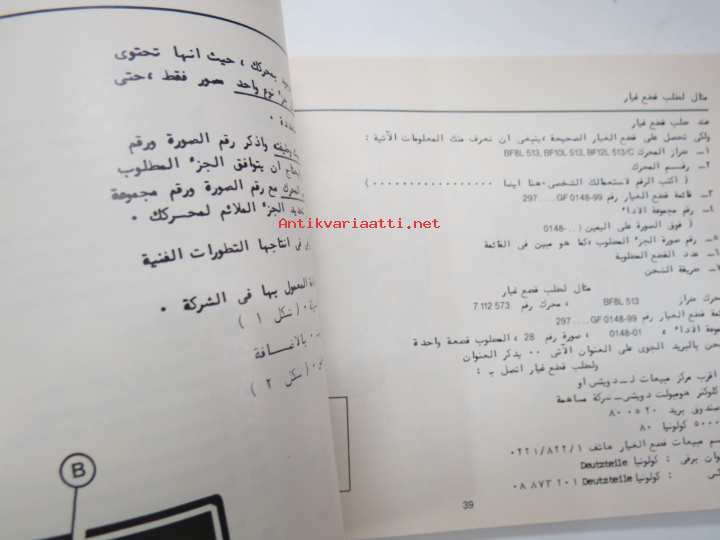 مثال لطلب قطع غيار
عند طلب قطع غيار
ولكي تحصل على قطع الغيار الصحيحة ، ينبغي ان نعرف منك المعلومات الآتية :
١ــ طراز المحرك BF8L 513, BF10L 513, BF12L 513/C
٢ــ رقم المحرك
( اكتب الرقم لاستعمالك الشخصى هنا ايضا ..................)
٣ــ قائمة قطع الغيار رقم GF 0148-99 .... 297
رقم مجموعة الاداء
( فوق الصورة على اليمين ( .. -0148
رقم صورة الجزء المطلوب ،كما هو مبين فى القائمة
عدد القطع المطلوبة
طريقة الشحن
مثال لطلب قطع غيار
طراز BF8L 513 ، محرك رقم 7 112 573
قطع الغيار رقم GF 0148-99 .... 297
مجموعة الاداء 01-0148 ، صورة رقم 28 ،المطلوب قطعة واحدة
بالبريد الجوى على العنوان الآتى .. يذكر العنوان
ولطلب قطع غيار اتصل بـ :
اقرب مركز مبيعات لـ دويتس او
كلوكنر هومبولت دويتس ــ شركة مساهمة
بريد ٨٠٠٥٢٠
كولونيا ٨٠
مبيعات قطع الغيار هاتف ٠٢٢١/٨٢٢/١
برقى : كولونيا Deutzteile
: كولونيا Deutzteile ٠٨ ٨٧٣ ٢٠١
39
بمحركك ، حيث انها تحتوى
نوع واحد مصور فقط ،حتى
واذكر رقم الصورة ورقم
ان يتوافق الجزء المطلوب
مع رقم الصورة ورقم مجموعة
الجزء الملائم لمحركك .
فى انتاجها التطورات الفنية
المعمول بها فى الشركة .
( شكل ١ )
بالاضافة
( شكل ٢ )
B
Antikvariaatti.net